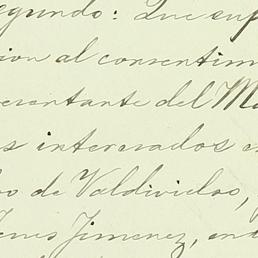 egundo: Que sup
ion al consentim
resentante del M
s interesados e
o de Valdivielso,
Jimenez, en